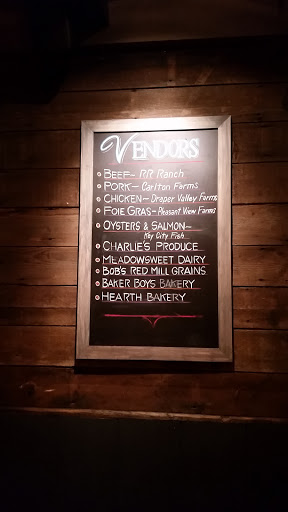 VENDORS
BEEF~ RR RANCH
PORK~ CARLTON FARMS
CHICKEN~ DRAPER VALLEY FARMS
FOIE GRAS~ PLEASANT VIEW FARMS
OYSTERS & SALMON~
KEY CITY FISH
CHARLIE'S PRODUCE
MEADOWSWEET DAIRY
BOB'S RED MILL GRAINS
BAKER BOYS BAKERY
HEARTH BAKERY